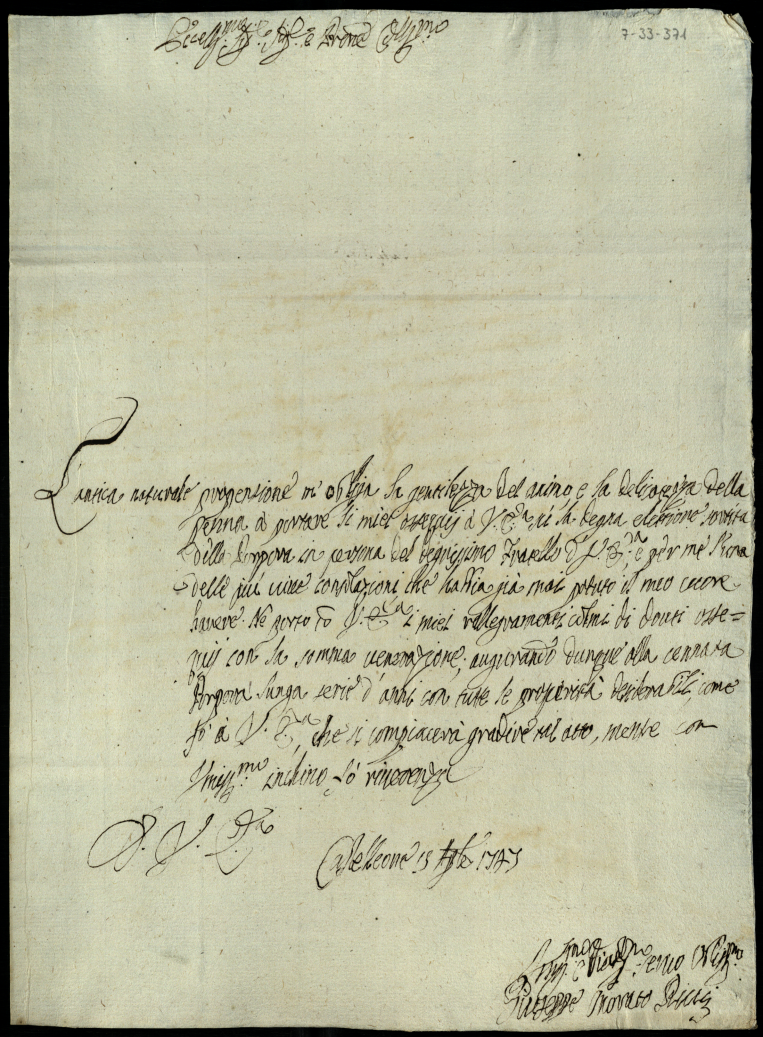 7-33-371
Eccell.mo Sig.re Sig.r e Prone Oss.mo
L'antica naturale propensione m'obliga la gentilezza del animo e la delicatezza della
penna à portare li miei ossequij à V. E.za di la degna elezione sortita
della Porpora in persona del degnissimo Fratello d' V. E.za, e per me l'una
delle più vive consolazioni che habbia già mai potuto il meo cuore
havere. Ne porto co V. E.za i miei rallegramenti colmi di douti osse=
quij con la somma venerazione, augurando dunque alla cennata
Porpora lunga serie d'anni con tutte le prosperità desiderabili, come
fò à V. E.za, che si compiacerà gradire tal atto, mente con
umiliss.mo inchino fò riverenza
D. V. E.za
Castelleone 13 1743
Umiliss.mo Servo Obligat.mo
Giuseppe Morato